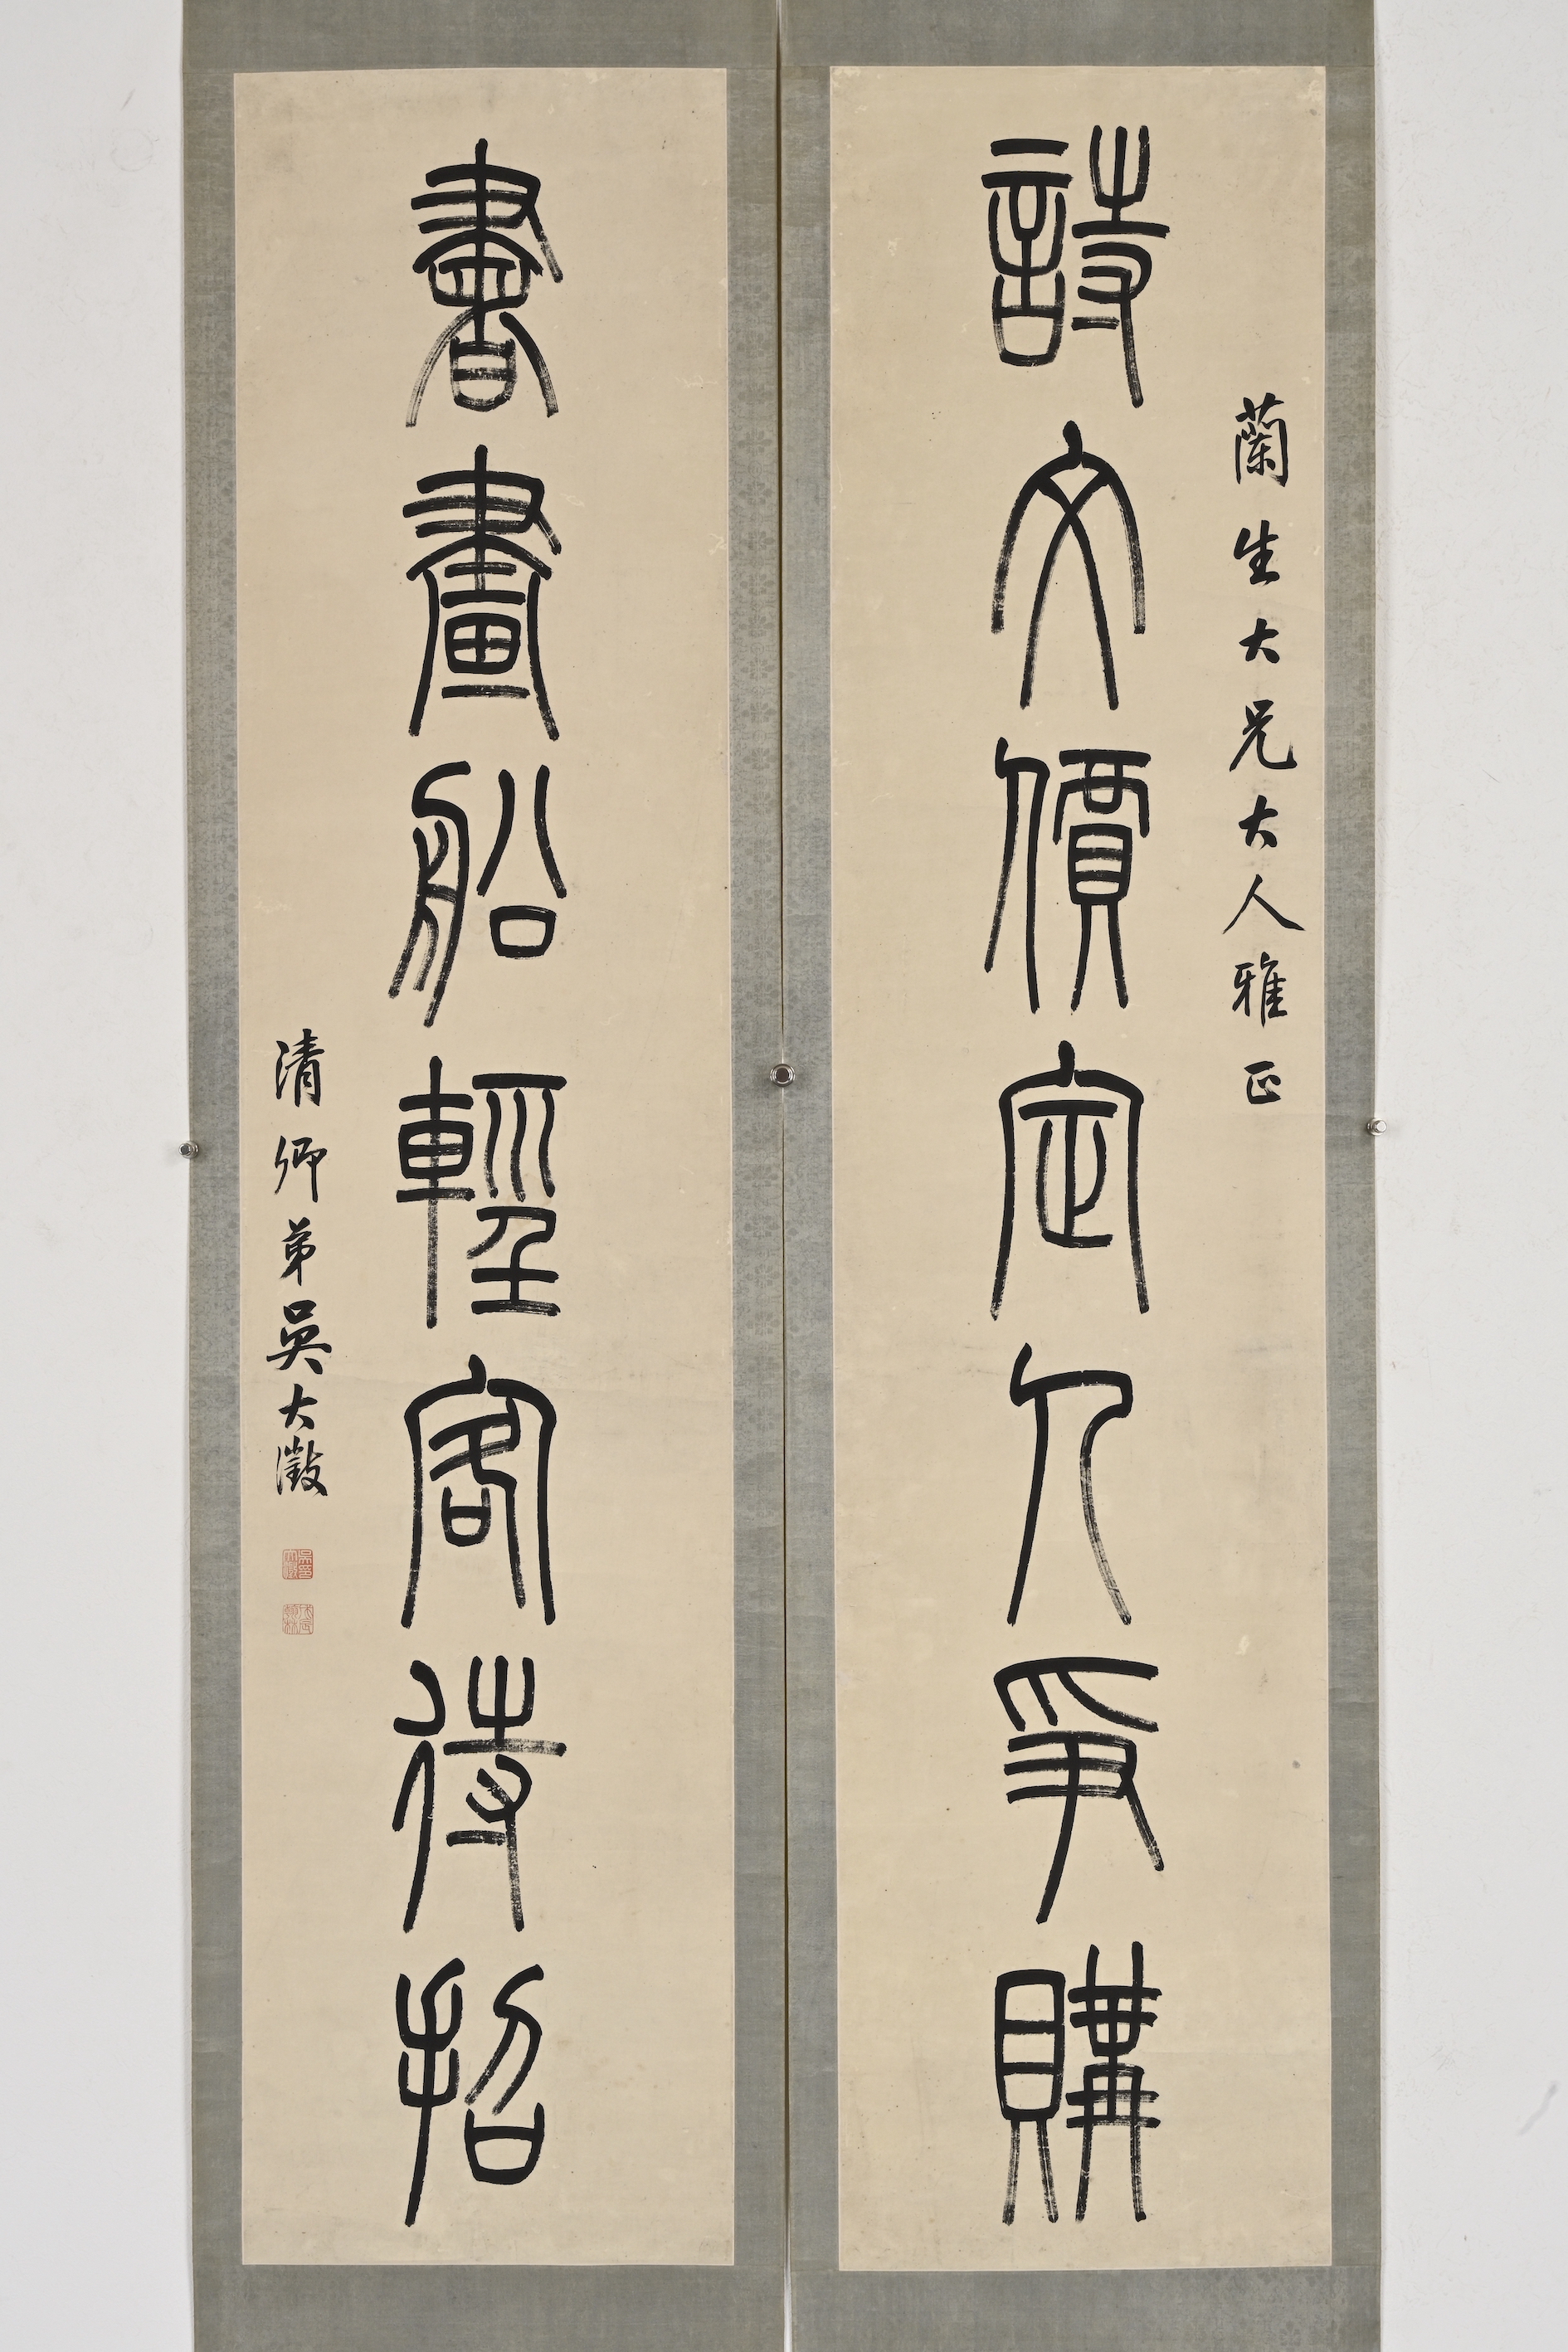 詩文價定人爭購
蘭生大兄大人雅正
書畫船輕客待招
清卿弟吳大澂